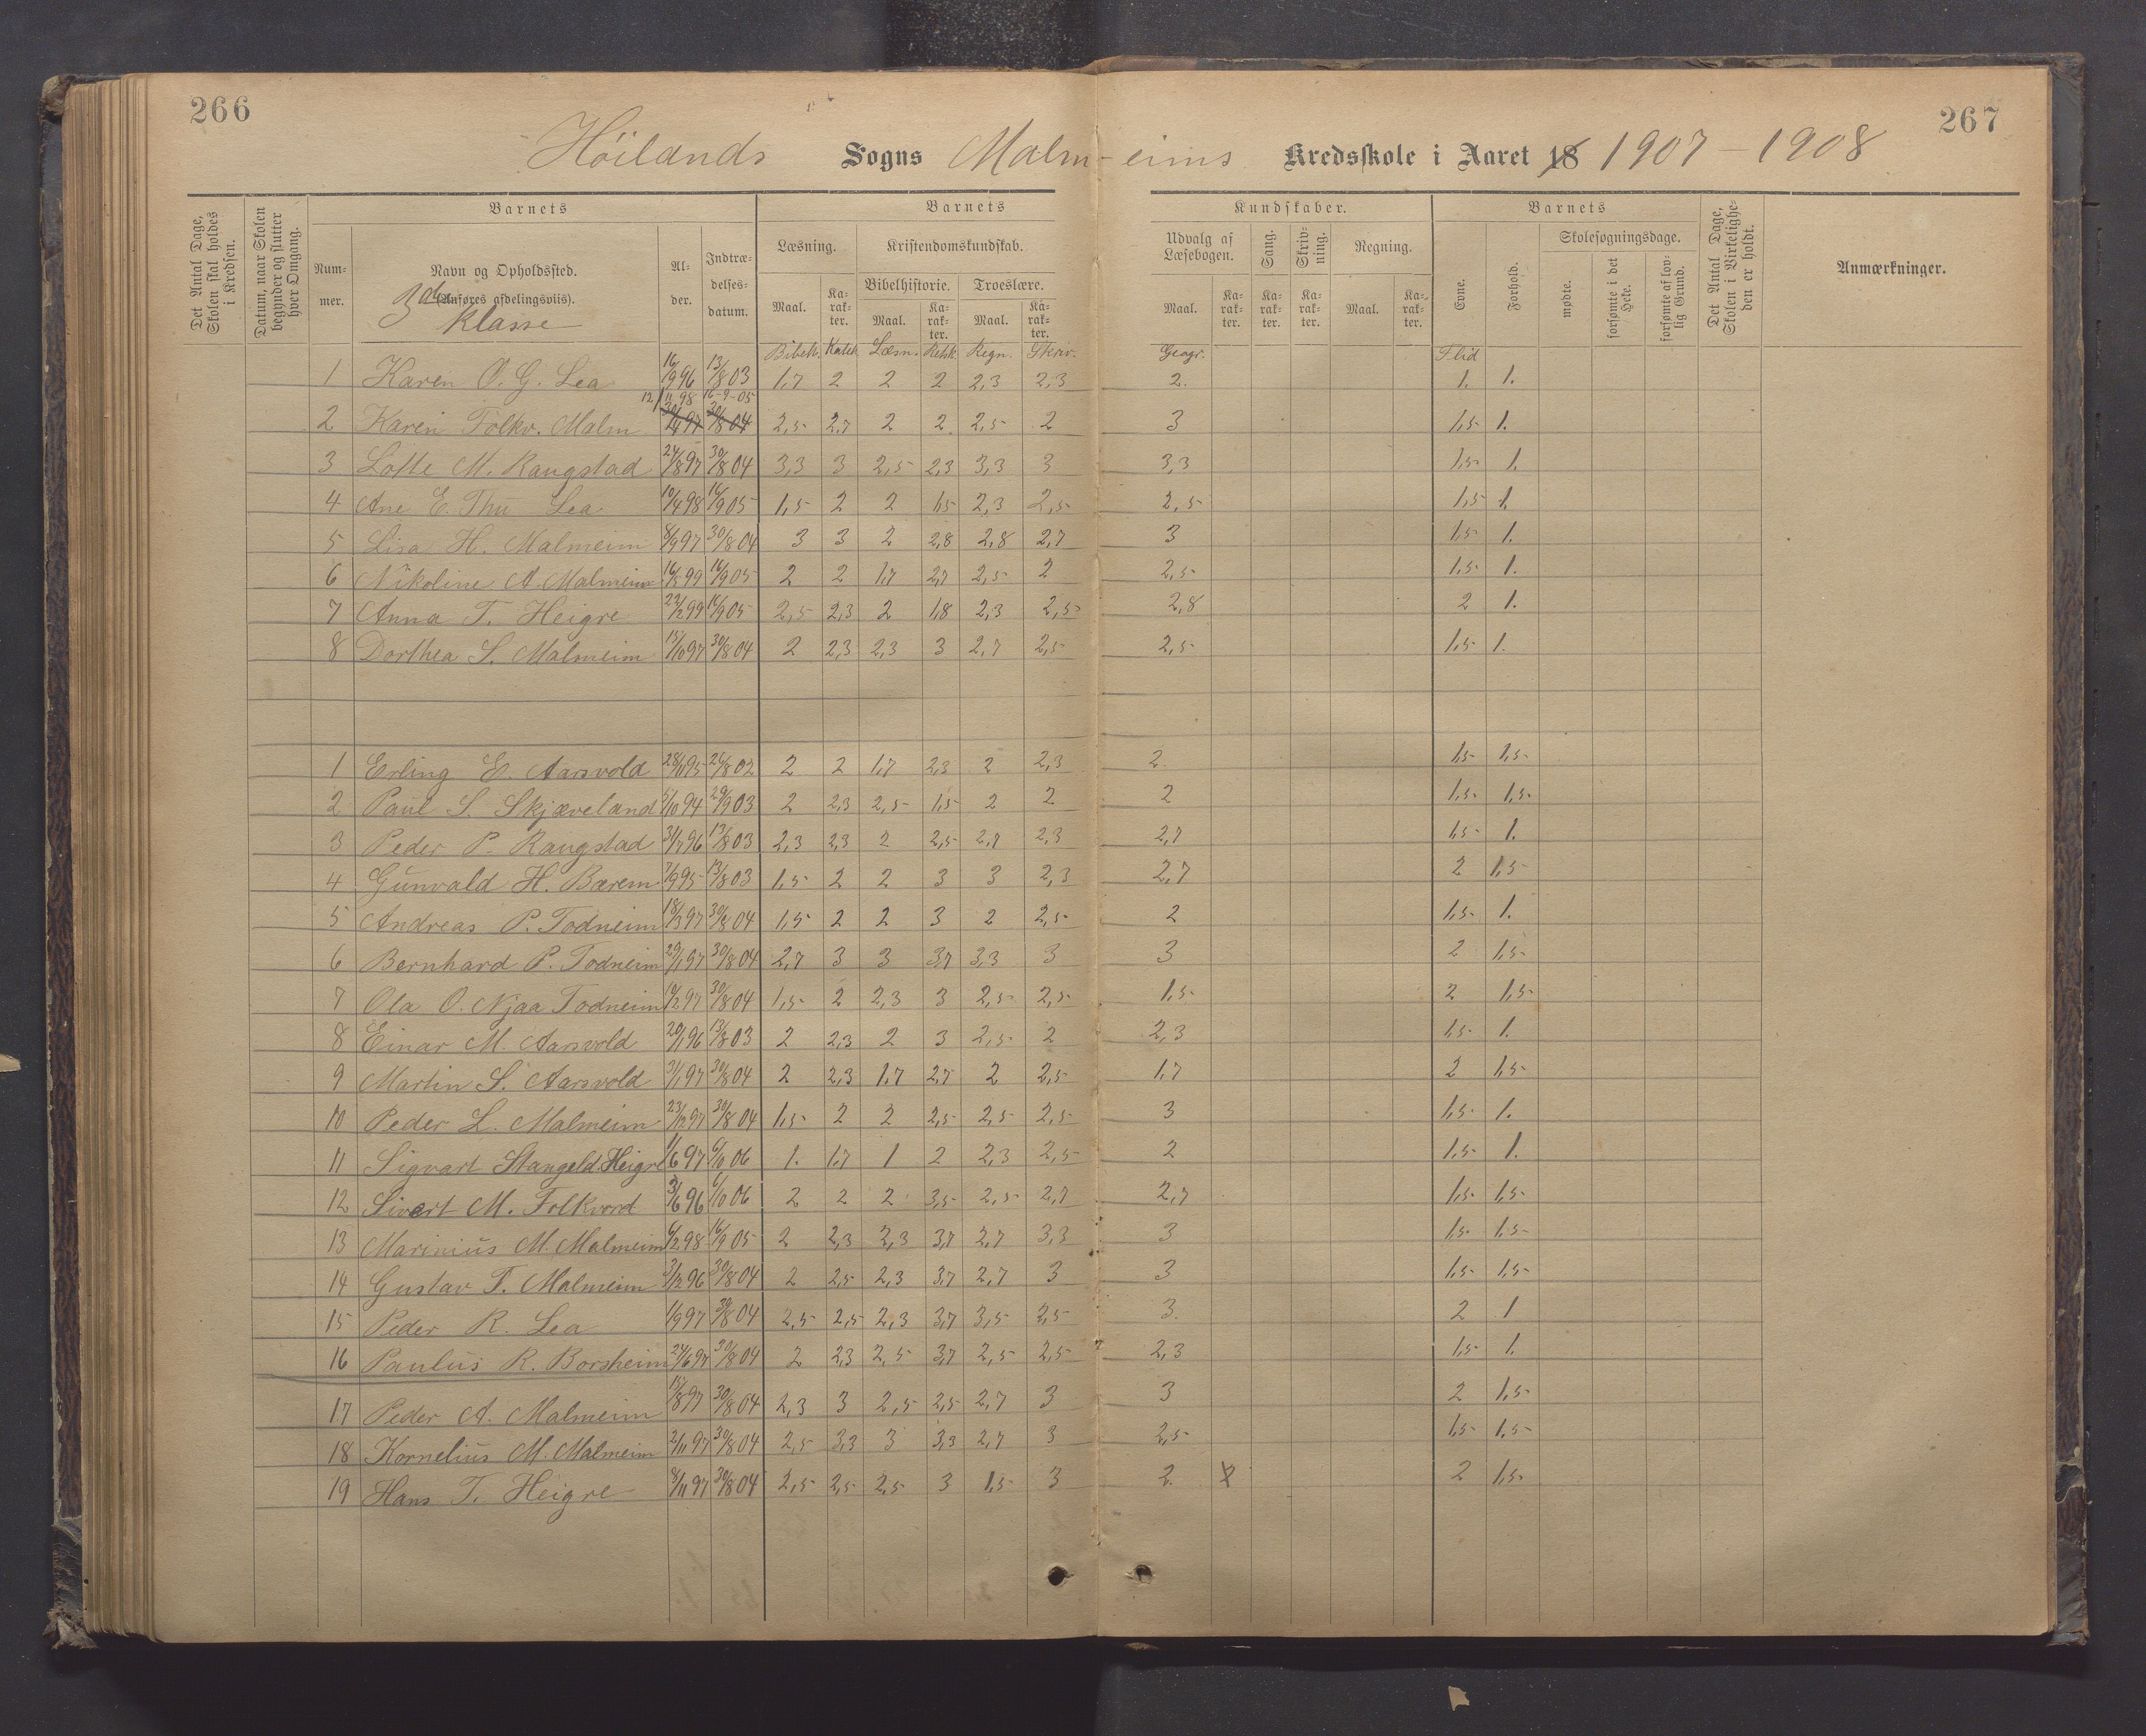 266
267
Höilands Sogns Malm-eims Kredsskole i Aaret 18 1907-1908
Det Antal Dage, Skolen skal holdes i Kredsen.
Datum, naar Skolen begynder og slutter hver Omgang.
Barnets
Barnets
Kundskaber.
Barnets
Det Antal Dage, Skolen i Virkeligheden er holdt.
Anmærkninger.
Nummer.
Navn og Opholdssted.
(Anføres afdelingsviis).
3die Klasse
Alder.
Indtrædelsesdatum.
Læsning.
Kristendomskundskab.
Udvalg af Læsebogen.
Sang.
Skrivning.
Regning.
Evne.
Forhold.
Skolesøgningsdage.
mødte.
forsømte i det Hele.
forsømte af lovlig Grund.
Bibelhistorie.
Troeslære.
Maal. Karakter. Maal. Karakter. Maal. Karakter. Maal. Karakter. Karakter. Karakter. Maal. Karakter.
Bibelh. Katek. Læsn. Retsk. Regn. Skriv. Geogr. Flid
1 Karen O. G. Lea 16/9 96 13/8 03 1,7 2 2 2 2,3 2,3 2. 1. 1.
12/11 98 16-9-05
2 Karen Folkv. Malm 30/8 04 2,5 2,7 2 2 2,5 2 3 1,5 1.
3 Lotte M. Rangstad 24/8 97 30/8 04 3,3 3 2,5 2,3 3,3 3 3,3 1,5 1.
4 Ane E. Thu Lea 10/4 98 16/9 05 1,5 2 2 1,5 2,3 2,5 2,5 1,5 1
5 Lisa H. Malmeim 8/9 97 30/8 04 3 3 2 2,8 2,8 2,7 3 1,5 1.
6 Nikoline A. Malmeim 16/5 99 16/9 05 2 2 1,7 2,7 2,5 2 2,5 1,5 1.
7 Anna T. Heigre 22/2 99 16/9 05 2,5 2,3 2 1,8 2,3 2,5 2,8 2 1.
8 Dorthea S. Malmeim 15/10 97 30/8 04 2 2,3 2,3 3 2,7 2,5 2,5 1,5 1.
1 Erling E. Aarsvold 28/1 95 25/8 02 2 2 1,7 2,3 2 2,3 2. 1,5 1,5
2 Paul S. Skjæveland 5/10 94 29/9 03 2 2,3 2,5 1,5 2 2 2 1,5 1,5
3 Peder P. Rangstad 31/7 96 13/8 03 2,3 2,3 2 2,5 2,7 2,3 2,7 1,5 1.
4 Gunvald H. Bærem 7/9 95 13/8 03 1,5 2 2 3 3 2,3 2,7 2 1,5
5 Andreas P. Todneim 18/3 97 30/8 04 1,5 2 2 3 2 2,5 2 1,5 1.
6 Bernhard P. Todneim 29/1 97 30/8 04 2,7 3 3 3,7 3,3 3 3 2 1,5
7 Ola O. Njaa Todneim 19/2 97 30/8 04 1,5 2 2,3 3 2,5 2,5 1,5 2 1,5
8 Einar M. Aarsvold 20/1 96 13/8 03 2 2,3 2 3 2,5 2 2,3 1,5 1.
9 Martin S. Aarsvold 31/1 97 30/8 04 2 2,3 1,7 2,7 2 2,5 1,7 2 1,5
10 Peder L. Malmeim 23/12 97 30/8 04 1,5 2 2 2,5 2,5 2,5 3 1,5 1.
11 Sigvart Stangeld Heigre 1/6 97 6/10 06 1. 1,7 1 2 2,3 2,5 2 1,5 1.
12 Sivert M. Folkvord 3/6 96 6/10 06 2 2 2 3,5 2,5 2,7 2,7 1,5 1,5
13 Marinius M. Malmeim 6/2 98 16/9 05 2 2,3 2,3 3,7 2,7 3,3 3 1,5 1,5
14 Gustav T. Malmeim 31/12 96 30/8 04 2 2,5 2,3 3,7 2,7 3 3 1,5 1,5
15 Peder R. Lea 1/9 97 30/8 04 2,5 2,5 2,3 3,7 3,5 2,5 3. 2 1
16 Paulus R. Borsheim 24/6 97 30/8 04 2 2,3 2,5 3,7 2,5 2,5 2,3 1,5 1.
17 Peder A. Malmeim 15/8 97 30/8 04 2,3 3 2,5 2,5 2,7 3 3 2 1,5
18 Kornelius M. Malmeim 2/11 97 30/8 04 2,5 3,3 3 3,3 2,7 3 2,5 1,5 1,5
19 Hans T. Heigre 8/11 97 30/8 04 2,5 2,5 2,5 3 1,5 3 2. 2 1,5